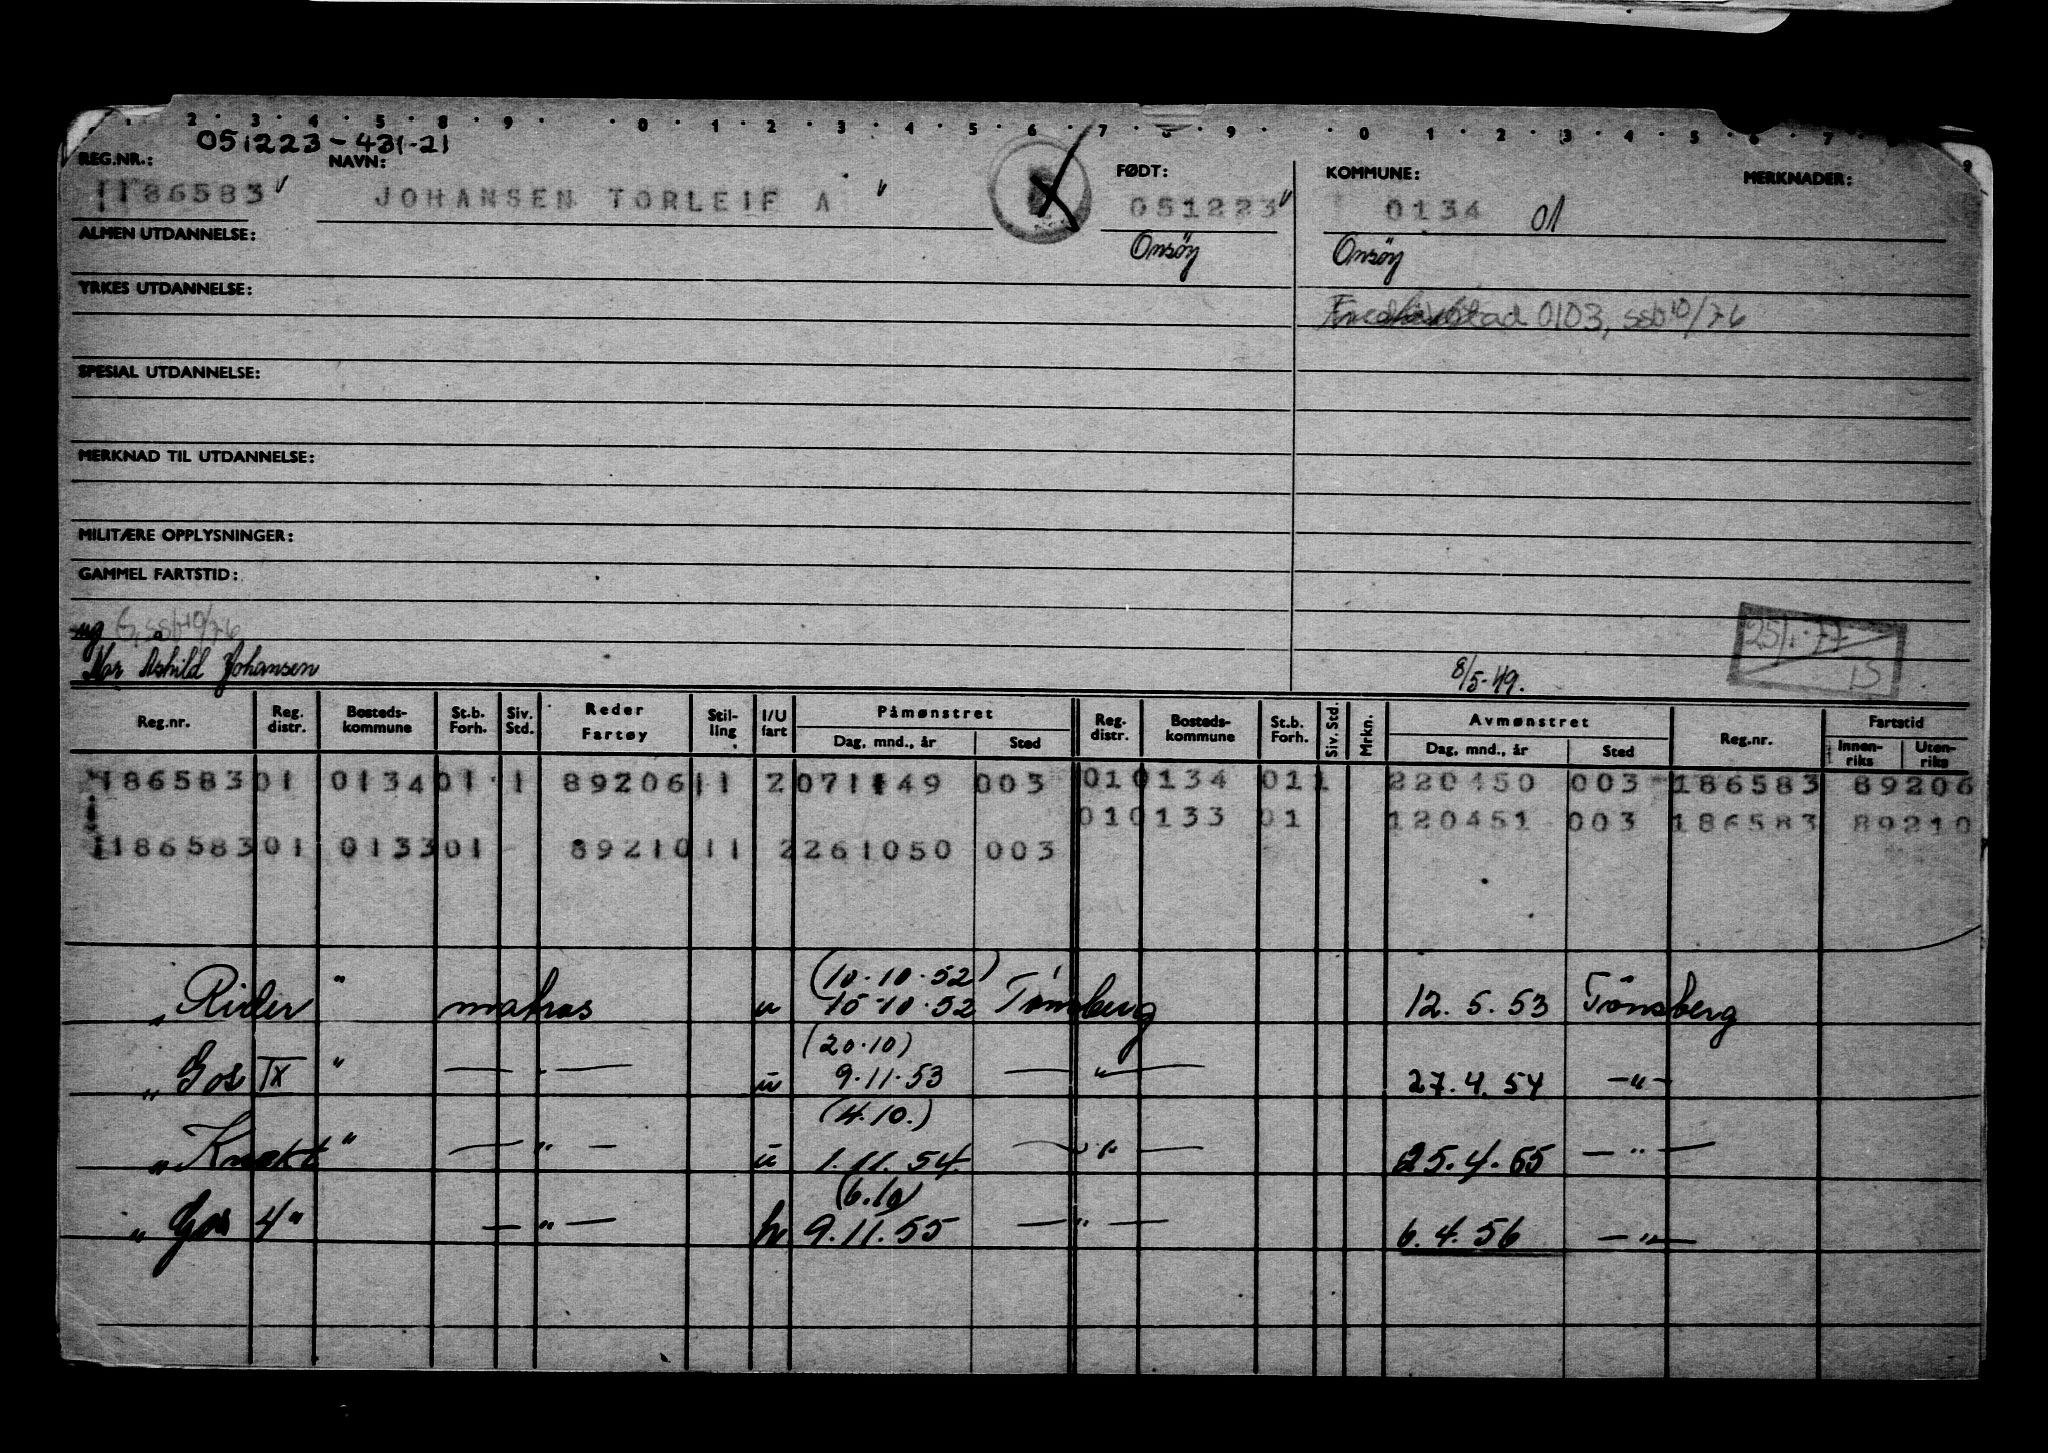 051223-431-21
REG.NR.: NAVN: FØDT: KOMMUNE: MERKNADER:
1186583 JOHANSEN TORLEIF A 051223 0134 01
ALMEN UTDANNELSE: Onsøy Onsøy
YRKES UTDANNELSE: Fredrikstad 0103, ssb 10/76
SPESIAL UTDANNELSE:
MERKNAD TIL UTDANNELSE:
MILITÆRE OPPLYSNINGER:
GAMMEL FARTSTID:
ug G, ssb 10/76 25/1-77
Mor Ashild Johansen 8/5-49. IS
Reg.nr. Reg. distr. Bosteds-kommune St.b. Forh. Siv. Std. Reder Fartøy Stil-ling I/U fart Påmønstret Dag, mnd., år Sted Reg. distr. Bosteds-kommune St.b. Forh. Siv. Std. Mrkn. Avmønstret Dag, mnd., år Sted Reg.nr. Fartstid Innen-riks Uten-riks
186583 01 0134 01 1 89206 11 2 071149 003 01 0134 01 1 220450 003 186583 89206
01 0133 01 120451 003 186583 89210
1186583 01 0133 01 89210 11 2 261050 003
(10.10.52)
"Rider" matros u 15-10.52 Tønsberg 12.5.53 Tønsberg
(20.10)
"Gos IX" — " — u 9.11.53 — " — 27.4.54 — " —
(4.10.)
"Knekt" — " — u 1.11.54 — " — 25.4.55 — " —
(6.10)
"Gos 4" — " — 9.11.55 — " — 6.4.56 — " —